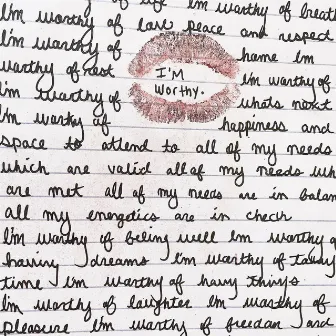 of life Im worthy of
Im worthy of love peace and respect
Im worthy of home Im
worthy of rest Im worthy of
I'M
worthy.
Im worthy of whats next
Im worthy of happiness and
space to attend to all of my needs
which are valid all of my needs
are met all of my needs are in
all my energetics are in check
Im worthy of being well Im worthy
having dreams Im worthy of
time Im worthy of having things
Im worthy of laughter Im worthy of
pleasure Im worthy of freedom